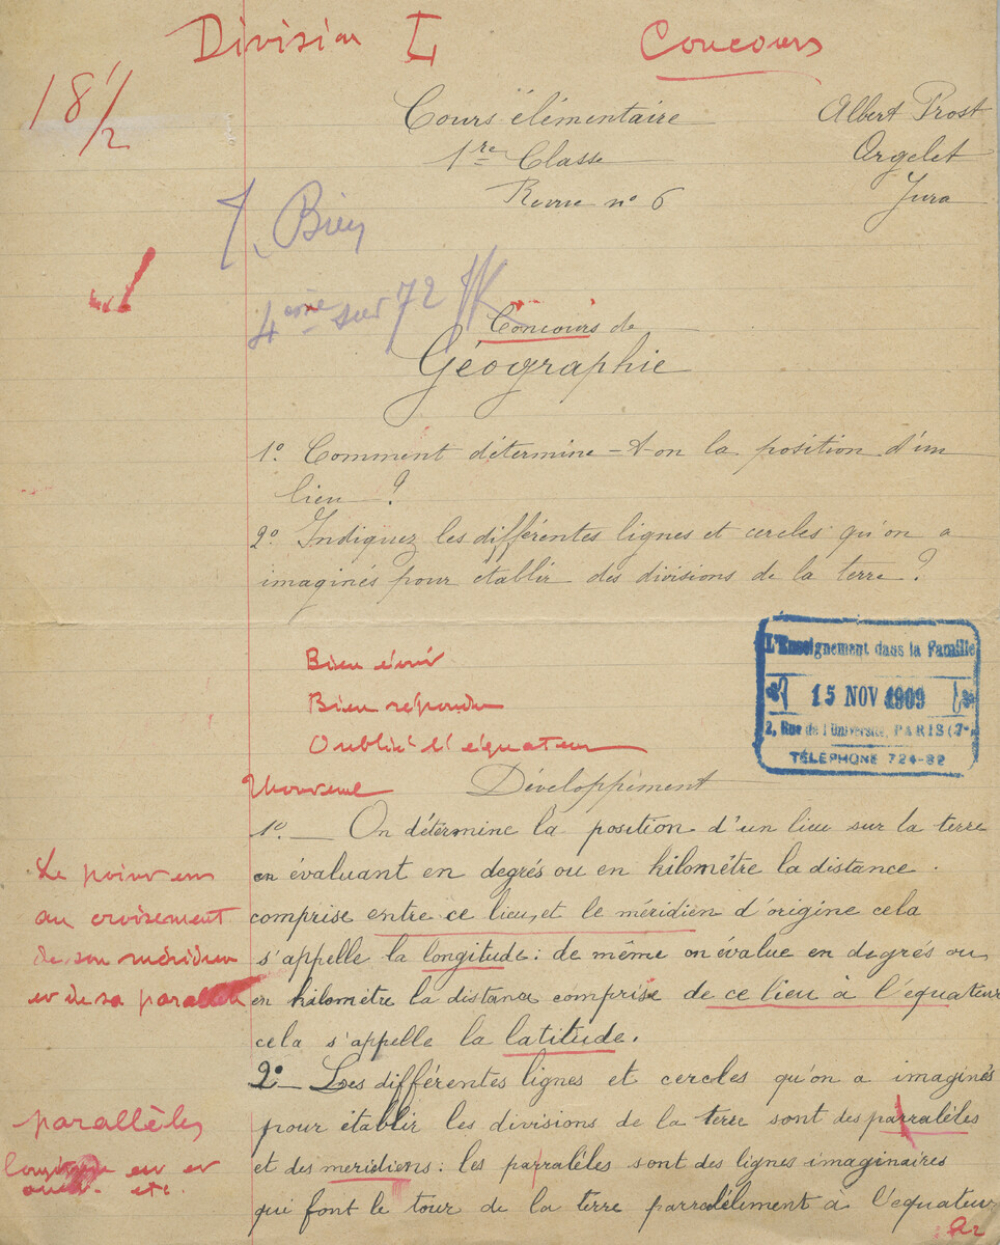 Division I Concours
18 1/2
Cours élémentaire Albert Prost
1re Classe Orgelet
Revue no 6 Jura
T. Bien
4ème sur 72
Concours de
Géographie
1o. Comment détermine-t-on la position d'un
lieu ?
2o. Indiquez les différentes lignes et cercles qu'on a
imaginés pour établir des divisions de la terre ?
L'Enseignement dans la Famille
15 NOV 1909
2, Rue de l'Université, PARIS (7e)
TÉLÉPHONE 724-82
Bien écrit
Bien répondu
Oublié l'équateur
Développement
1o. — On détermine la position d'un lieu sur la terre
en évaluant en degrés ou en kilomètre la distance
comprise entre ce lieu, et le méridien d'origine cela
s'appelle la longitude : de même on évalue en degrés ou
en kilomètre la distance comprise de ce lieu à l'équateur
cela s'appelle la latitude.
Le point est
au croisement
de son méridien
et de sa parallèle
2o — Les différentes lignes et cercles qu'on a imaginés
pour établir les divisions de la terre sont des parralèles
et des meridiens : les parralèles sont des lignes imaginaires
qui font le tour de la terre parralèlement à l'equateur
parallèles
est et
ouest. etc.